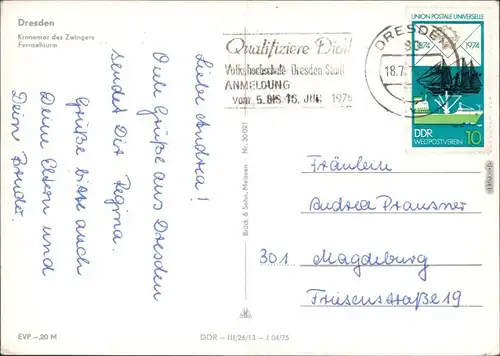 Dresden
Kronentor des Zwingers
Fernsehturm
Liebe Andrea!
Viele Grüße aus Dresden
sendet Dir Regina.
Grüße bitte auch
Deine Eltern und
Deine Brüder.
EVP -,20 M
Brück & Sohn, Meissen Nr. 30021
DDR – III/26/13 – J 04/75
Qualifiziere Dich!
Volkshochschule Dresden Stadt
ANMELDUNG
vom 5. BIS 15. JUNI 1975
DRESDEN
18.7.
UNION POSTALE UNIVERSELLE
1874 1974
DDR
WELTPOSTVEREIN 10
Fräulein
Andrea Prausner
301 Magdeburg
Friesenstraße 19